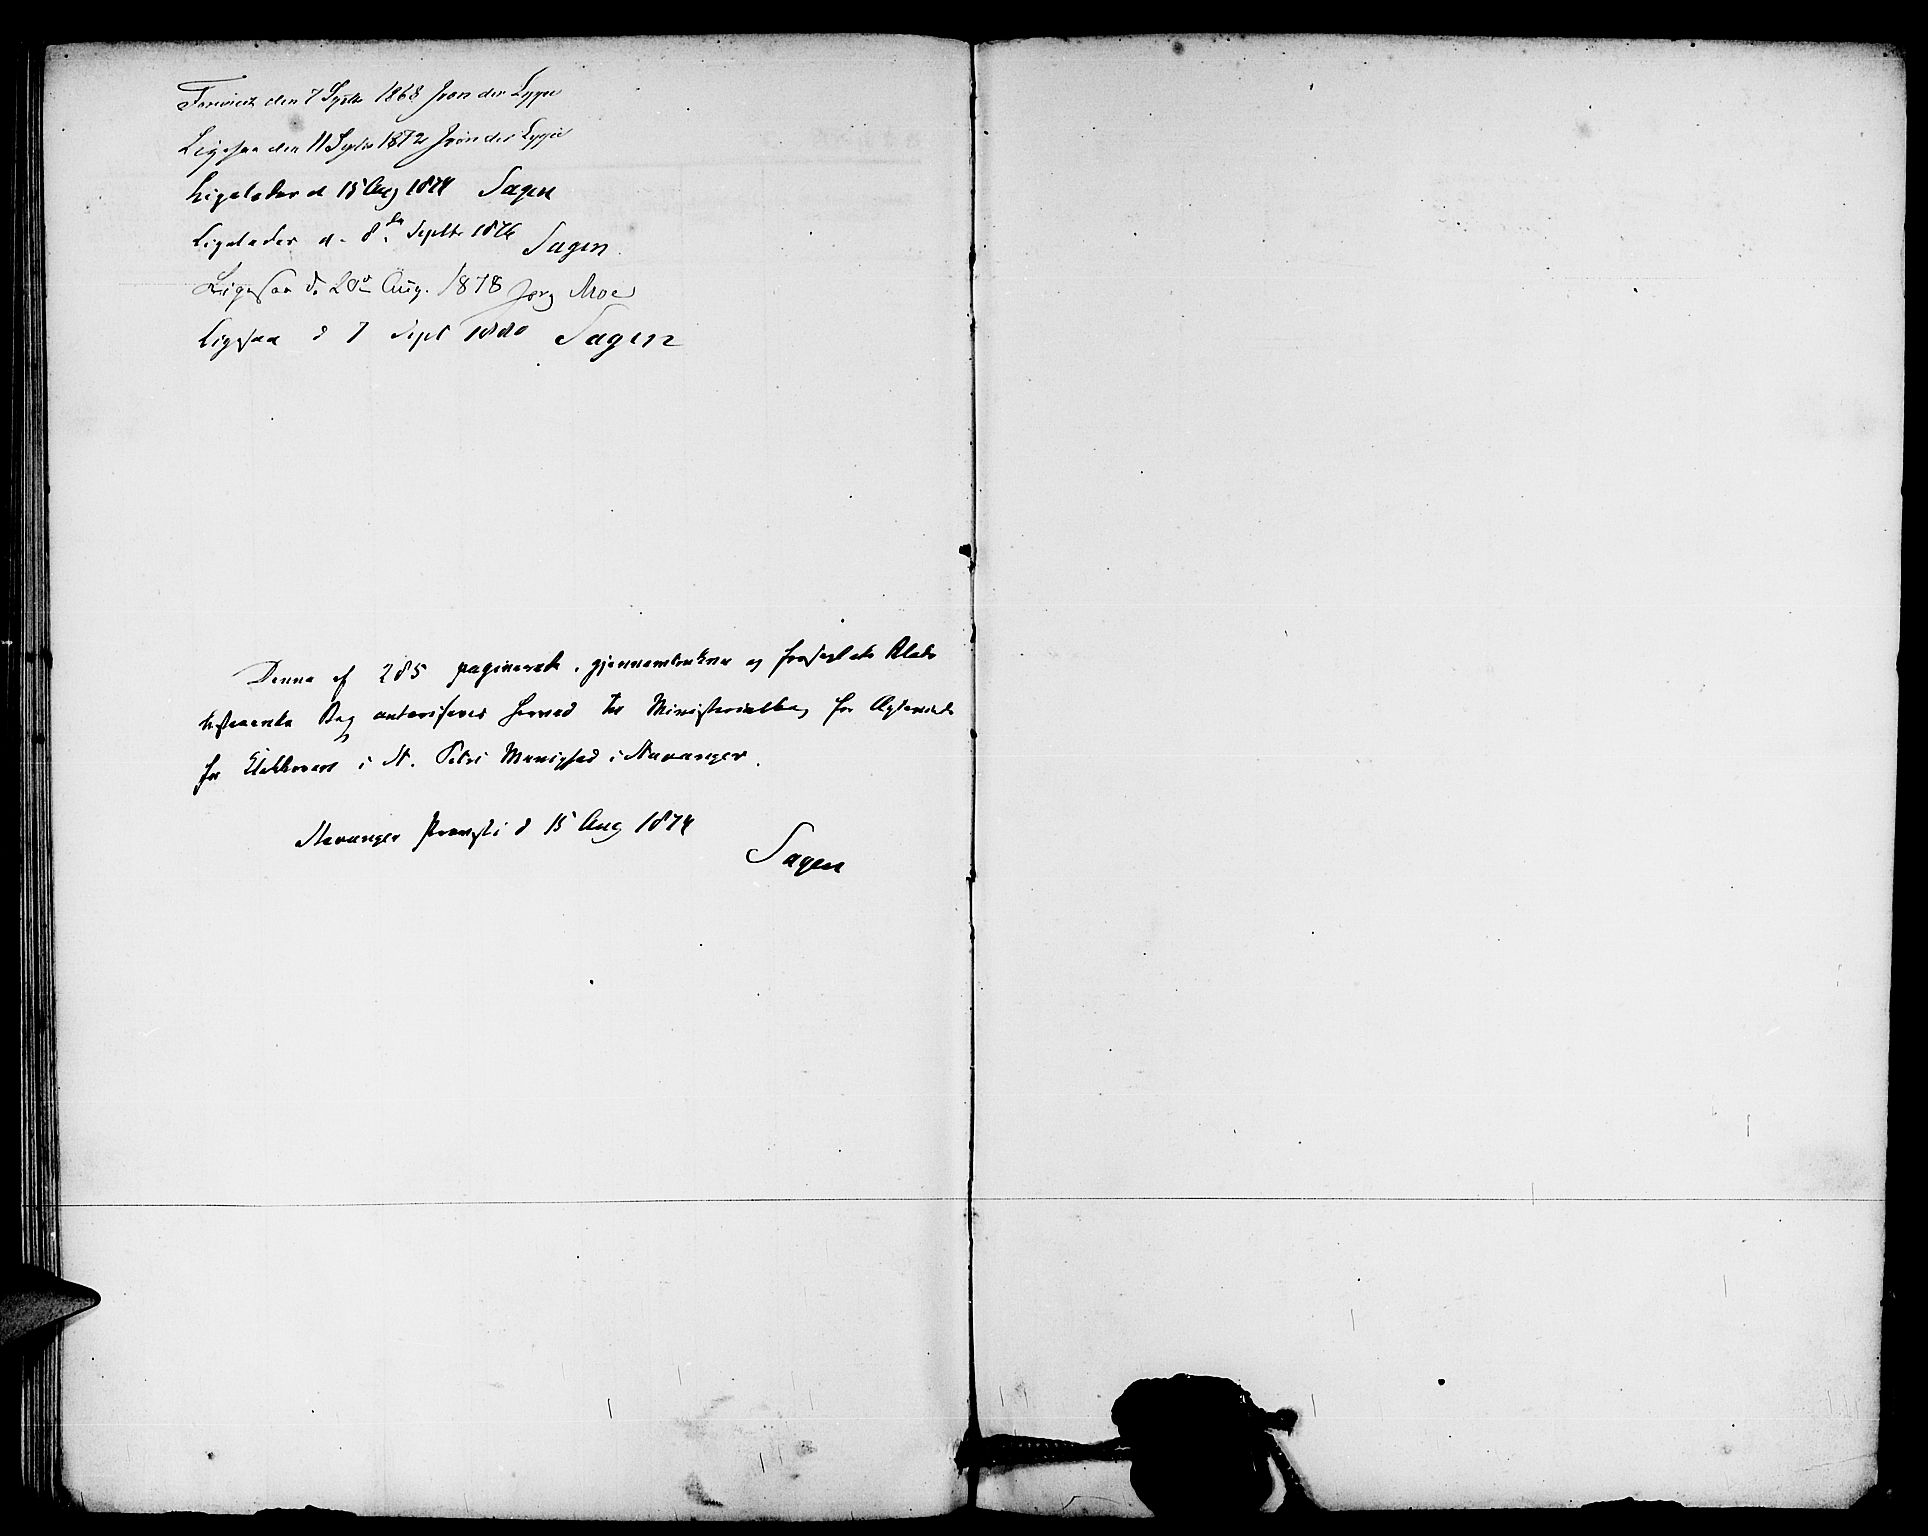 Forevist den 7 Septbr 1868 J von der Lippe
Ligesaa den 11 Septbr 1872 J von der Lippe
Ligeledes d 15 Aug 1874 Sagen
Ligeledes d. 8de Septbr 1876 Sagen.
Ligesaa d. 20de Aug. 1878 Jørg Moe
Ligesaa d 7 Sept 1880 Sagen
Denne af 285 paginerede, gjennemtrukne og forseglede Blade
bestaaende Bog autoriseres herved til Ministerialbog for
for Klokkeren i St. Petri Menighed i Stavanger.
Stavanger Provsti d 15 Aug 1874
Sagen